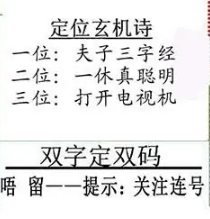 定位玄机诗
一位：夫子三字经
二位：一休真聪明
三位：打开电视机
双字定双码
唔 留——提示：关注连号